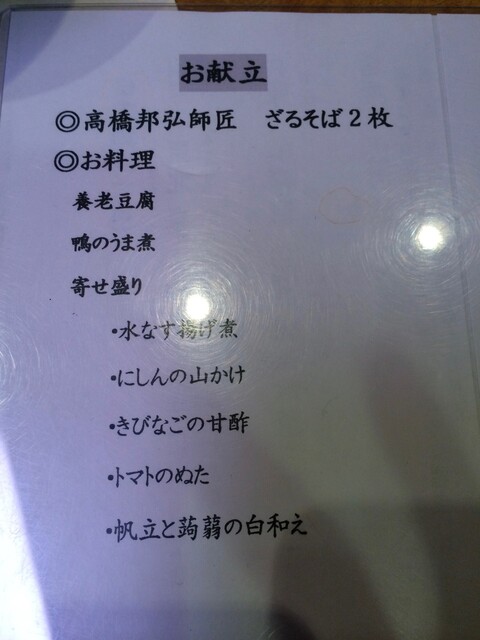 お献立
◎高橋邦弘師匠　ざるそば２枚
◎お料理
養老豆腐
鴨のうま煮
寄せ盛り
・水なす揚げ煮
・にしんの山かけ
・きびなごの甘酢
・トマトのぬた
・帆立と蒟蒻の白和え